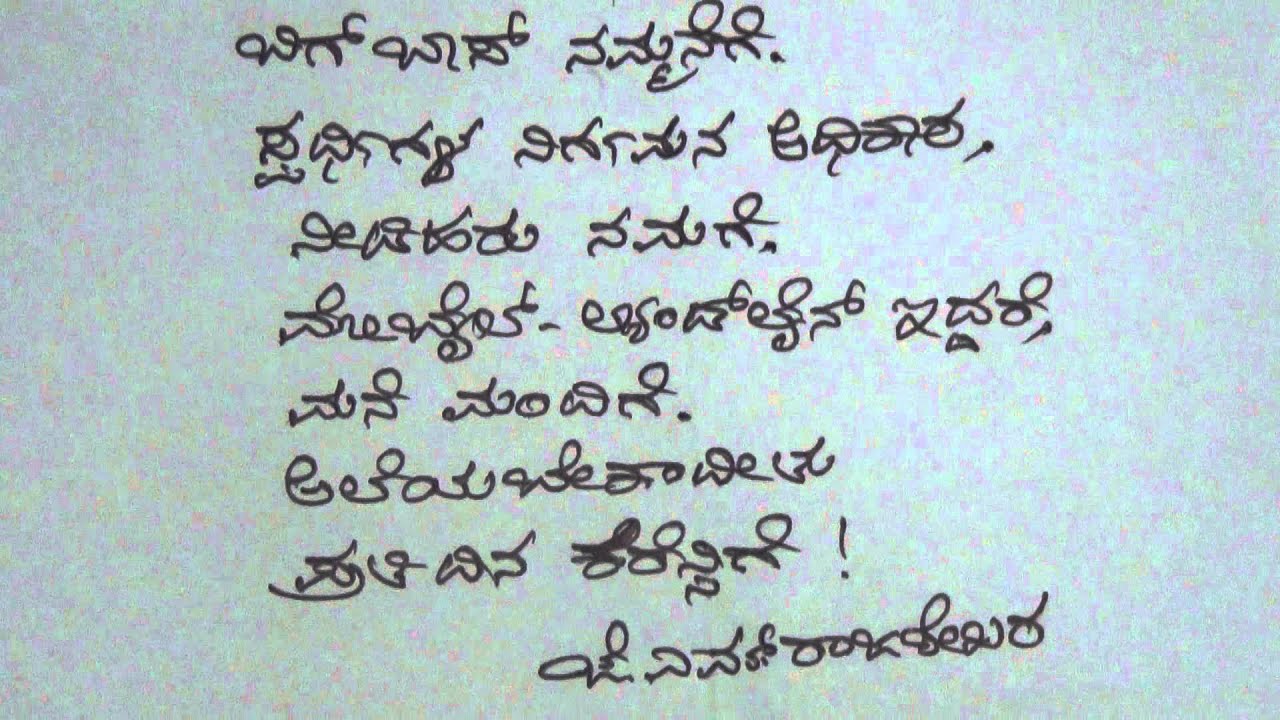 ಬಿಗ್ ಬಾಸ್ ನಮ್ಮನೆಗೆ.
ಸ್ಪರ್ಧಿಗಳ ನಿರ್ಗಮನ ಅಧಿಕಾರ,
ನೀಡಿಹರು ನಮಗೆ.
ಮೊಬೈಲ್ - ಲ್ಯಾಂಡ್‌ಲೈನ್ ಇದ್ದರೆ,
ಮನೆ ಮಂದಿಗೆ.
ಅಲೆಯಬೇಕಾದೀತು
ಪ್ರತಿ ದಿನ ಕರೆನ್ಸಿಗೆ !
ಜೆ. ಎಮ್. ರಾಜಶೇಖರ